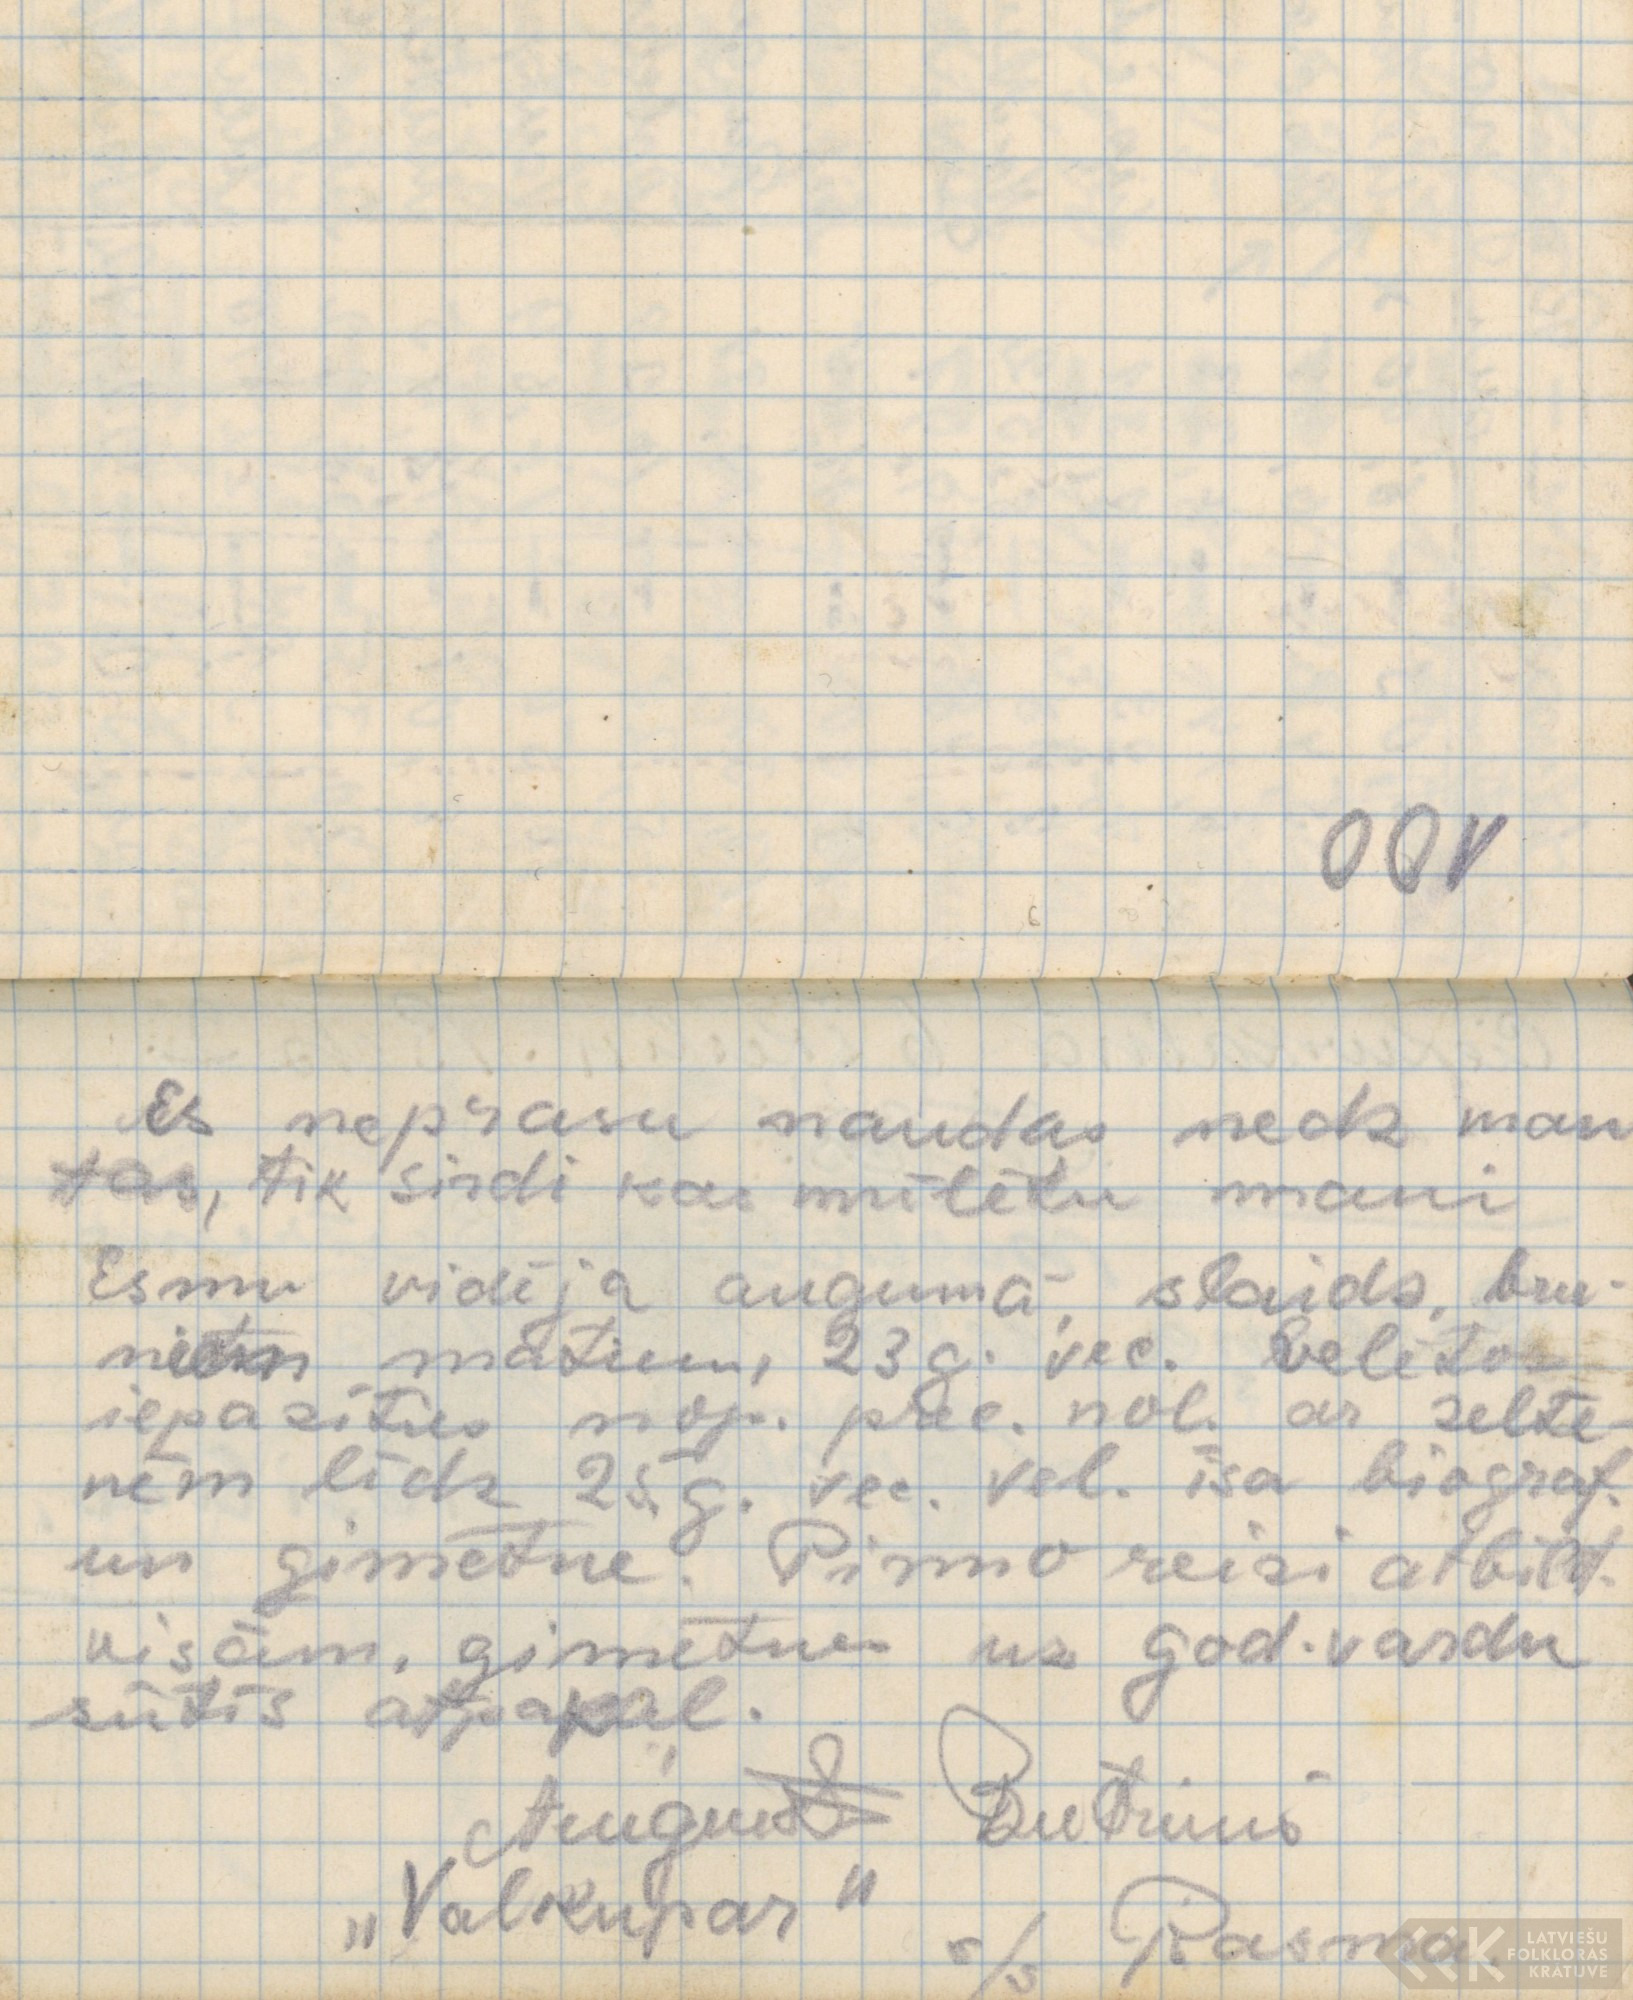 00V
Es neprasu naudas nedz man
tas, tik sirdi kas mīlētu mani
Esmu vidējā augumā, slaids, bru-
matiem, 23 g. vec. velētos
iepazīties nop. prec. nol. ar zelte-
nēm līdz 25 g. vec. vel. īsa biograf.
un ģimetne. Pirmo reizi atbild.
visām, ģimetnes uz god. vardu
sūtīs atpakaļ.
August Butrims
„Valkupar" Rasma
LATVIEŠU
FOLKLORAS
KRĀTUVE